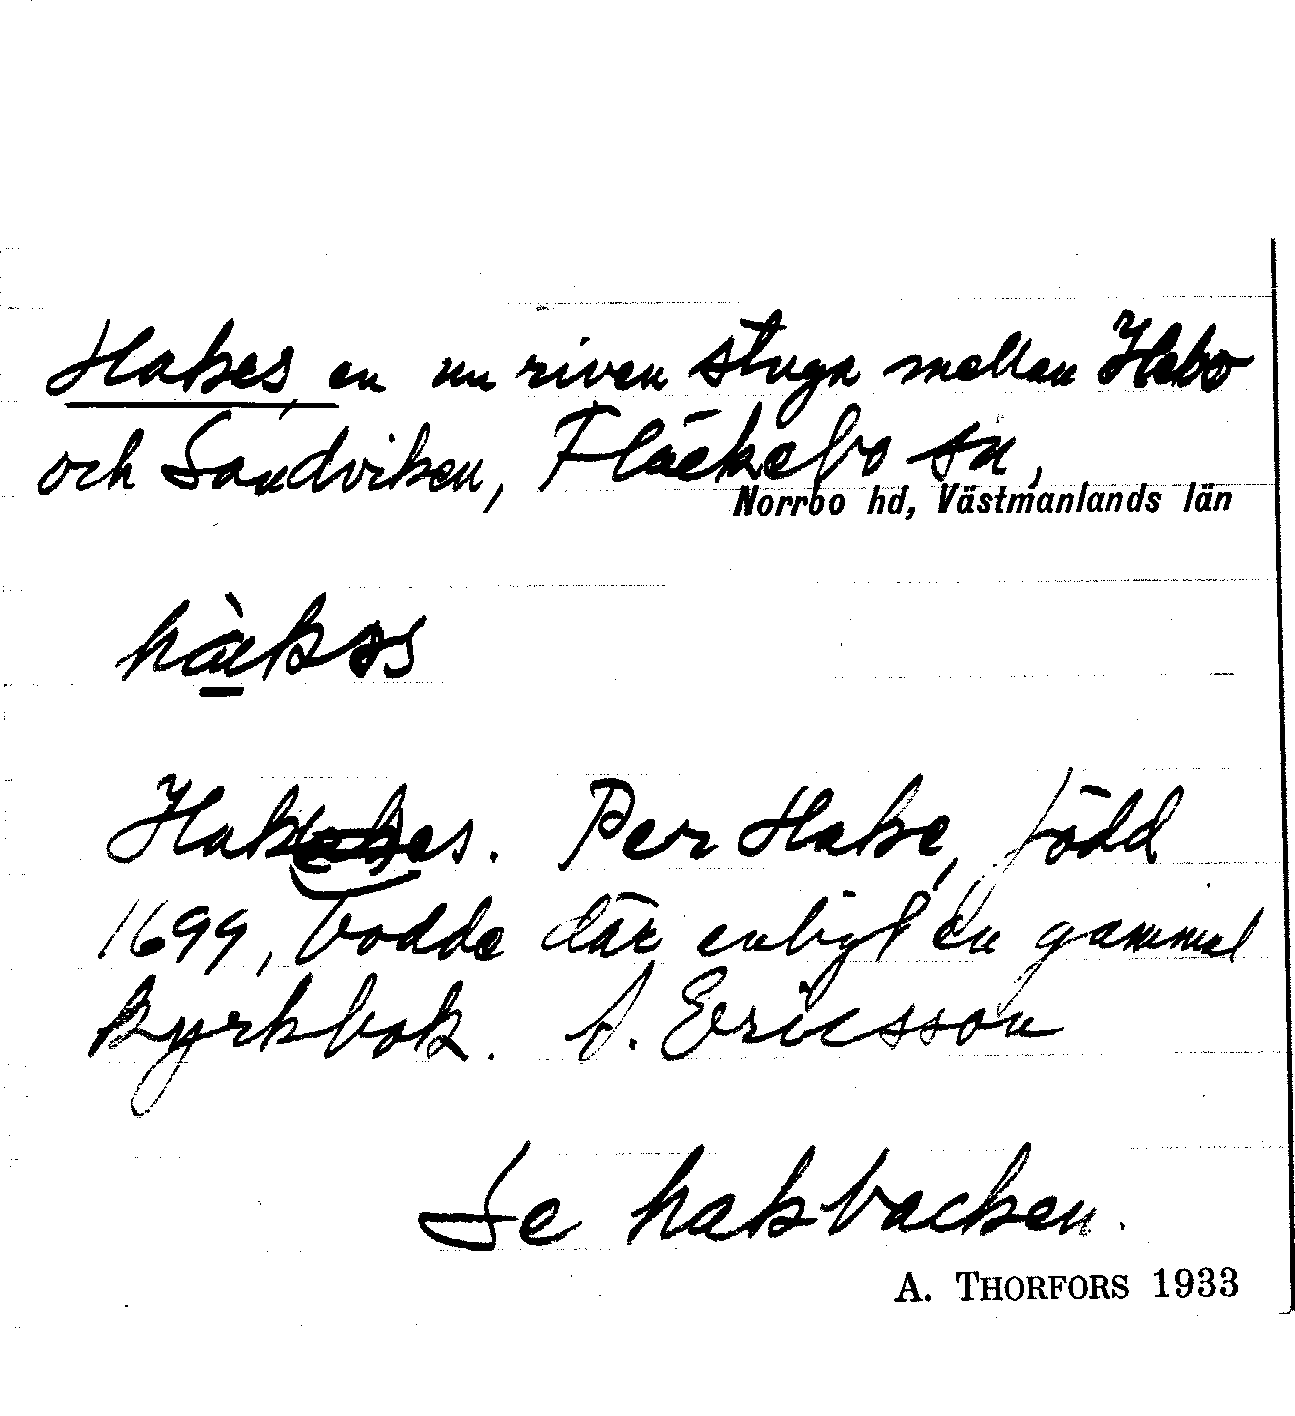 Hakes, en nu riven stuga mellan Hebo
och Sandviken, Fläckebo sn,
Norrbo hd, Västmanlands län
Hakes. Per Hake, född
1699, bodde där enligt en gammal
kyrkbok. A. Ericsson
Se hakbacken.
A. THORFORS 1933